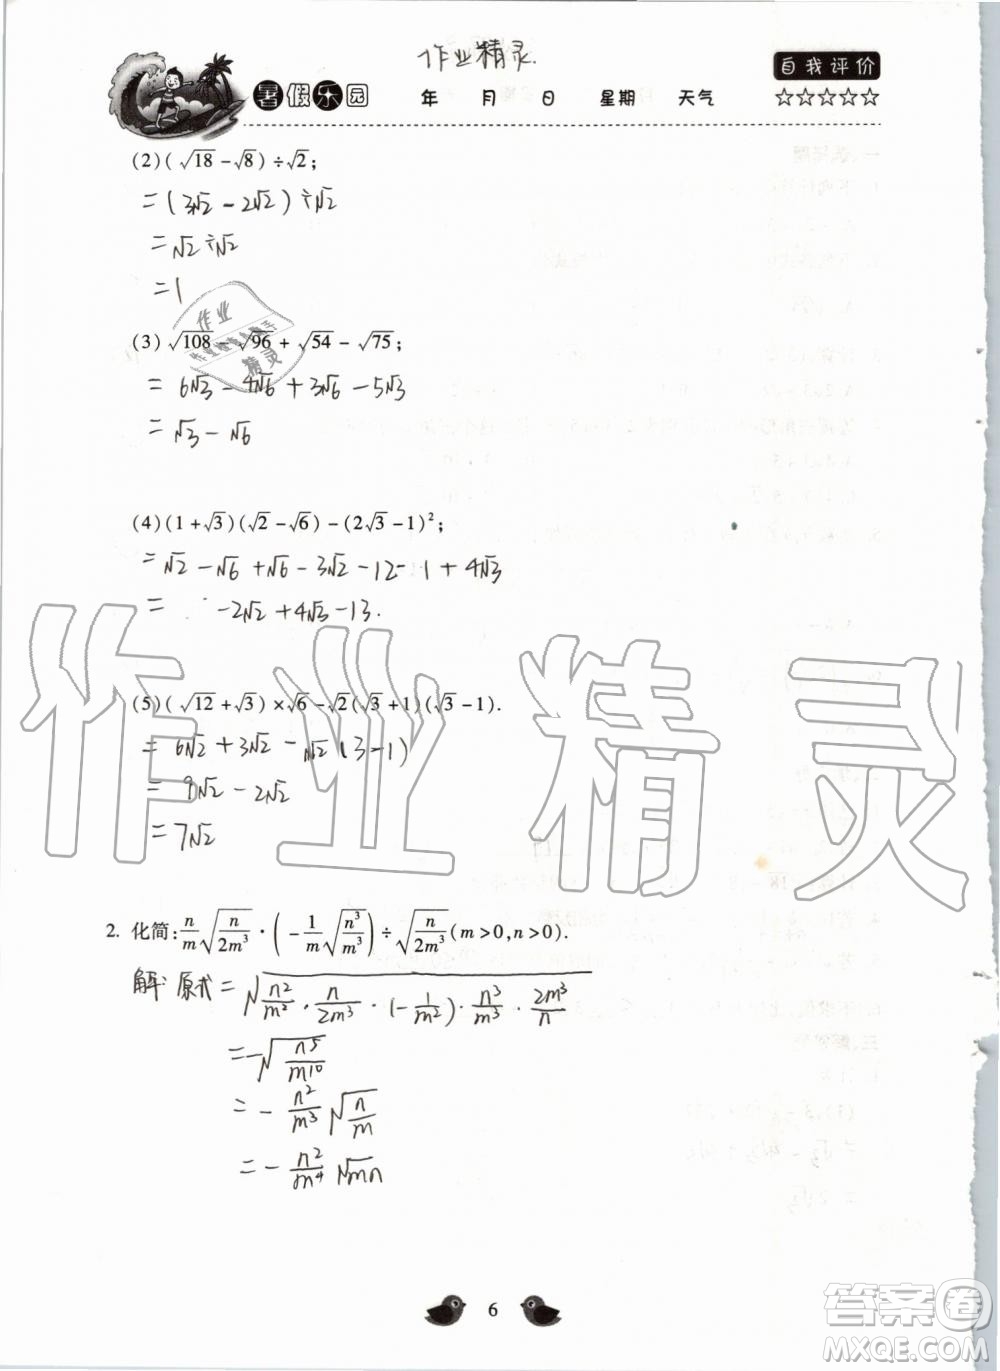 作业精灵.
暑假乐园 年 月 日 星期 天气 自我评价
☆☆☆☆☆
(2)(√18-√8)÷√2;
=(3√2-2√2)÷√2
=√2÷√2
=1
作业
精灵
(3)√108-√96+√54-√75;
=6√3-4√6+3√6-5√3
=√3-√6
(4)(1+√3)(√2-√6)-(2√3-1)²;
=√2-√6+√6-3√2-12-1+4√3
= -2√2+4√3-13.
作业精灵
(5)(√12+√3)×√6-√2(√3+1)(√3-1).
=6√2+3√2-√2(3-1)
=9√2-2√2
=7√2
2. 化简:n/m√(n/2m³)·(-1/m√(n³/m³))÷√(n/2m³)(m>0,n>0).
解:原式=√(n²/m²·n/2m³·(-1/m²)·n³/m³·2m³/n)
=-√(n⁵/m¹⁰)
=-n²/m³√(n/m)
=-n²/m⁴√mn
6
答案卷
MXQE.COM